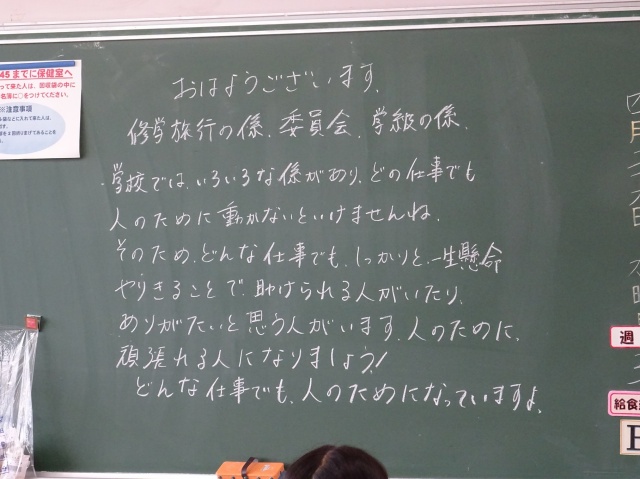 おはようございます。
修学旅行の係、委員会、学級の係、
学校では、いろいろな係があり、どの仕事でも
人のために動かないといけませんね。
そのため、どんな仕事でも、しっかりと、一生懸命
やりきることで、助けられる人がいたり、
ありがたいと思う人がいます。人のために、
頑張れる人になりましょう!
どんな仕事でも、人のためになっていますよ。
45までに保健室へ
って来た人は、回収袋の中に
名簿に○をつけてください。
※注意事項
四月
日
週
給食